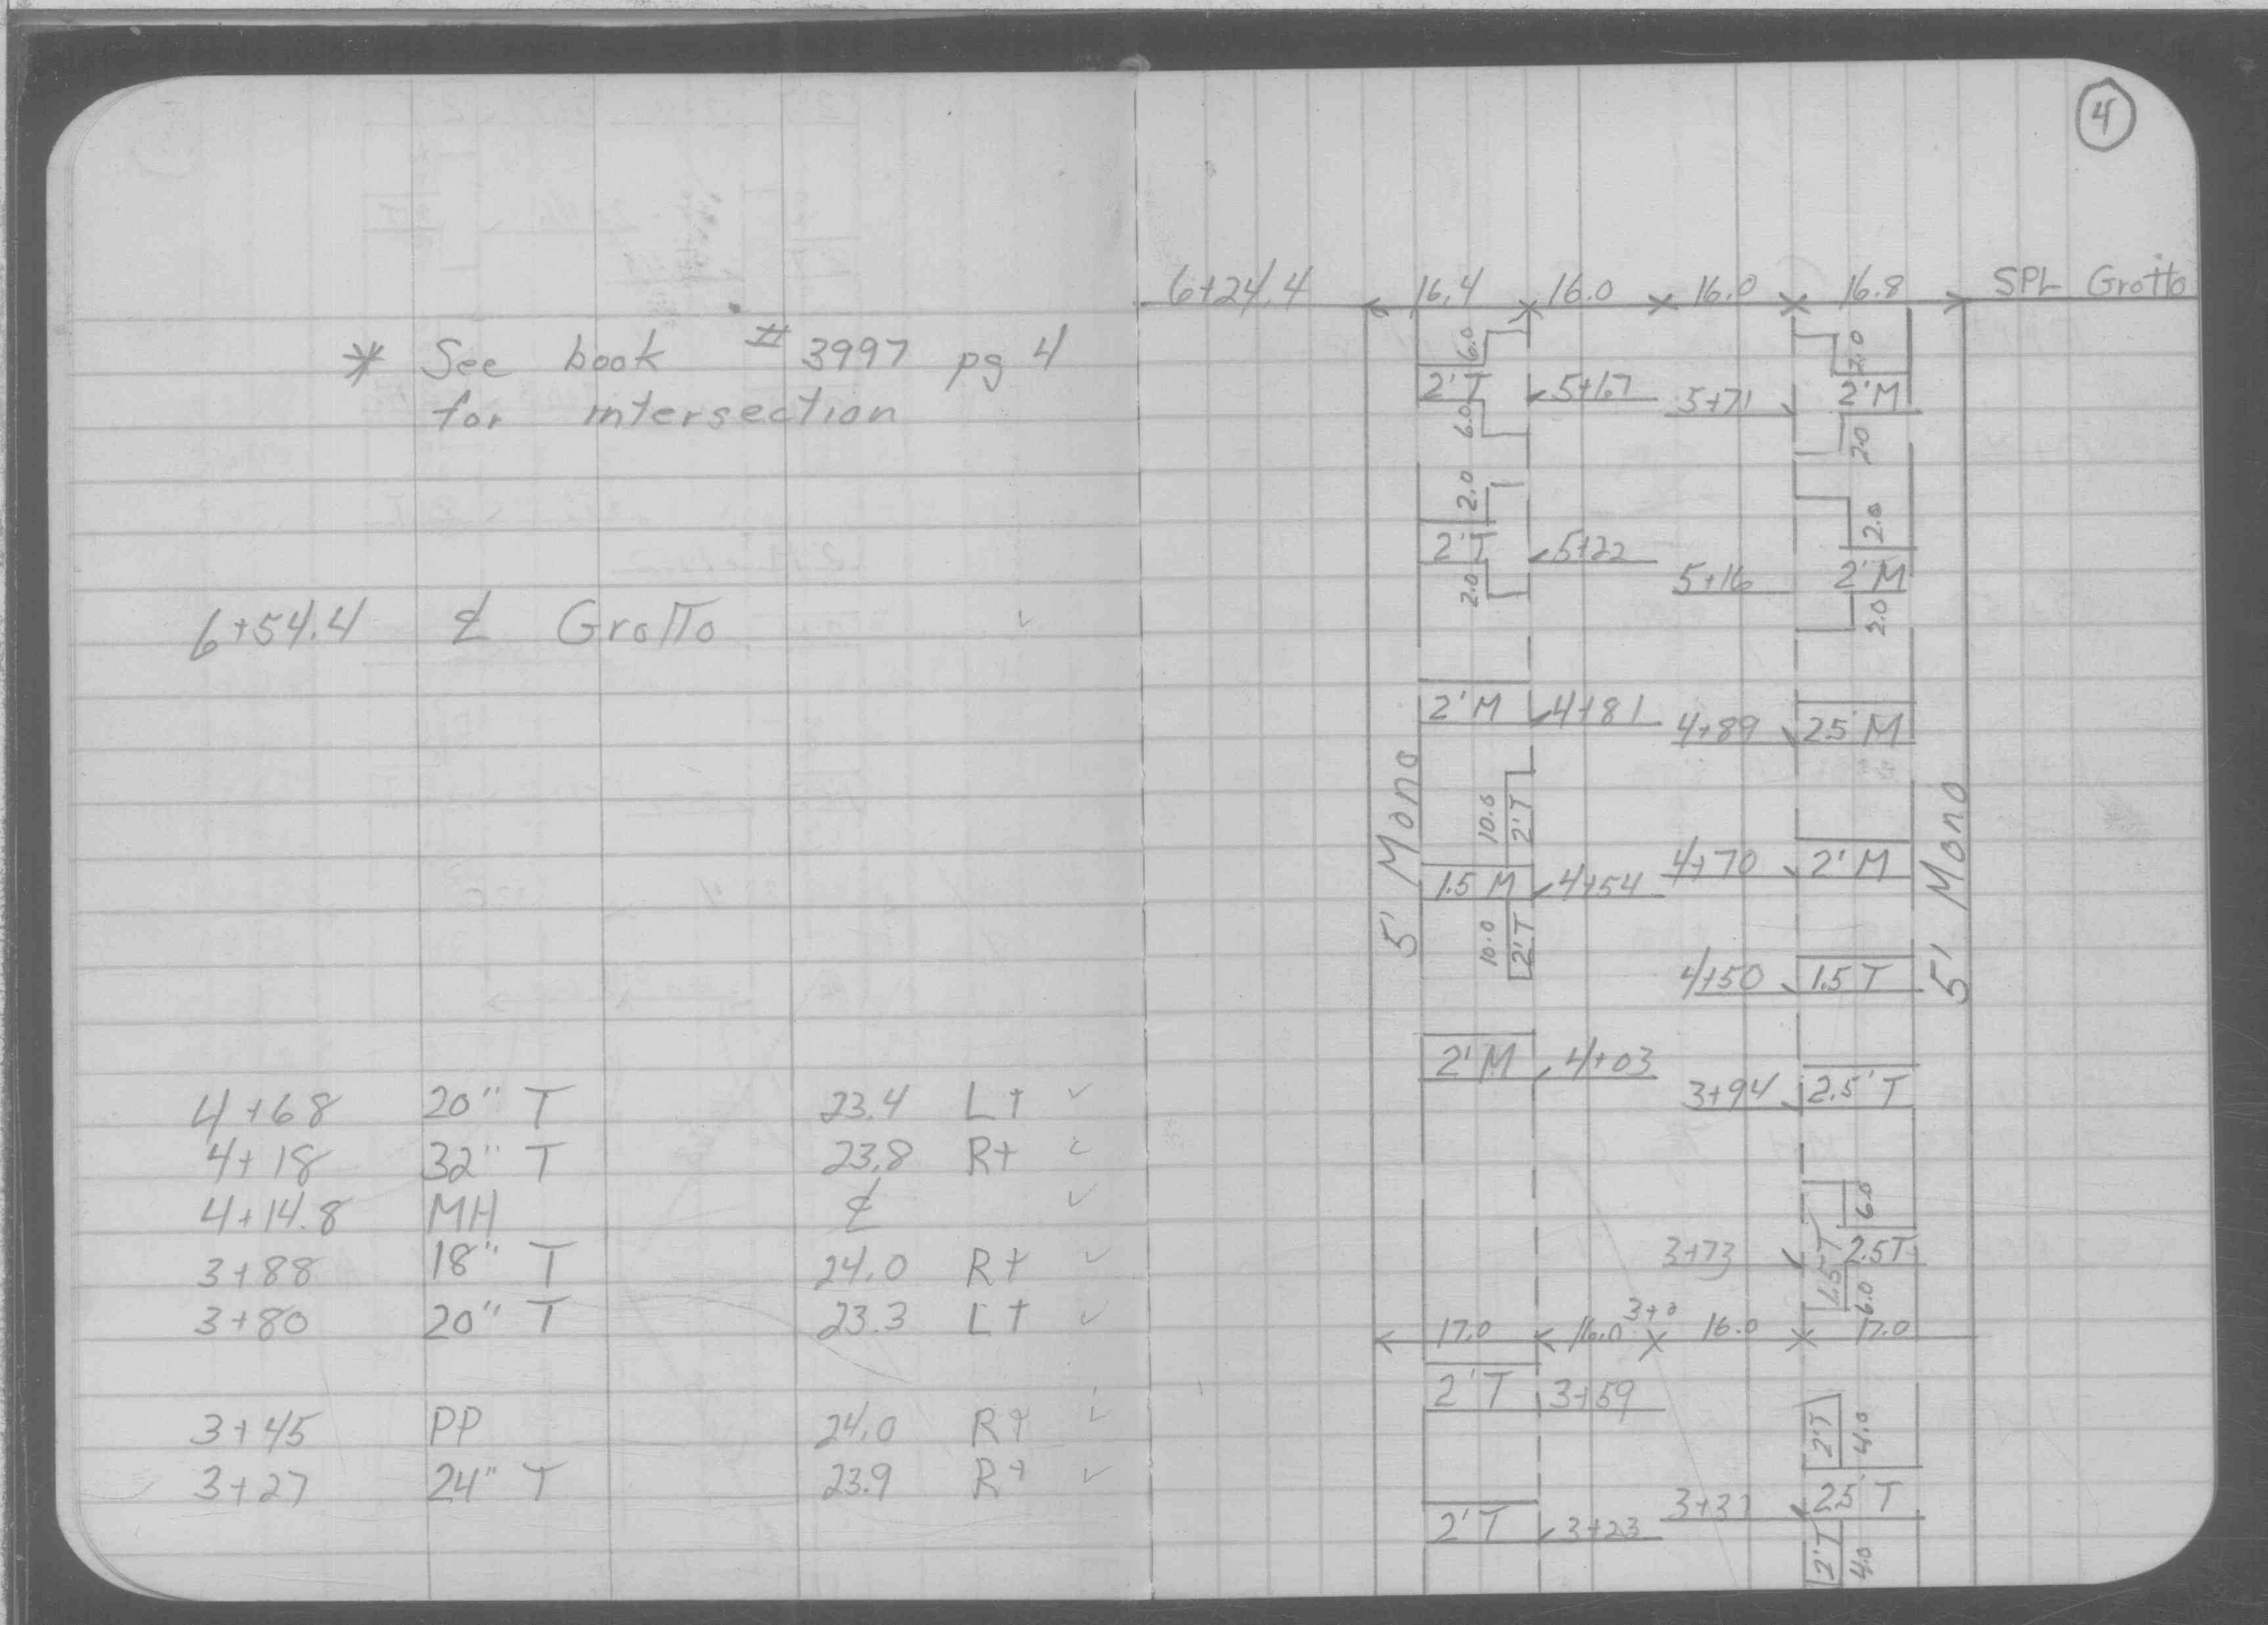 4
* See book # 3997 pg 4
for intersection
6+54.4 ℄ Grotto ✓
4+68 20" T 23.4 Lt ✓
4+18 32" T 23.8 Rt ✓
4+14.8 MH ℄ ✓
3+88 18" T 24.0 Rt ✓
3+80 20" T 23.3 Lt ✓
3+45 PP 24.0 Rt ✓
3+27 24" T 23.9 Rt ✓
6+24.4 16.4 16.0 16.0 16.8 SPL Grotto
6.0 2.0
2' T 5+67 5+71 2' M
6.0 2.0
2.0 2.0
2' T 5+22 5+16 2' M
2.0 2.0
2' M 4+81 4+89 2.5' M
5' Mono
5' Mono
10.0 2'T
1.5 M 4+54 4+70 2' M
10.0 2'T
4+50 1.5 T
2' M 4+03 3+94 2.5' T
6.0
3+73 1.5 T 2.5 T
6.0
17.0 16.0 16.0 17.0
2' T 3+59
2'T 4.0
2' T 3+23 3+31 2.5' T
2'T 4.0